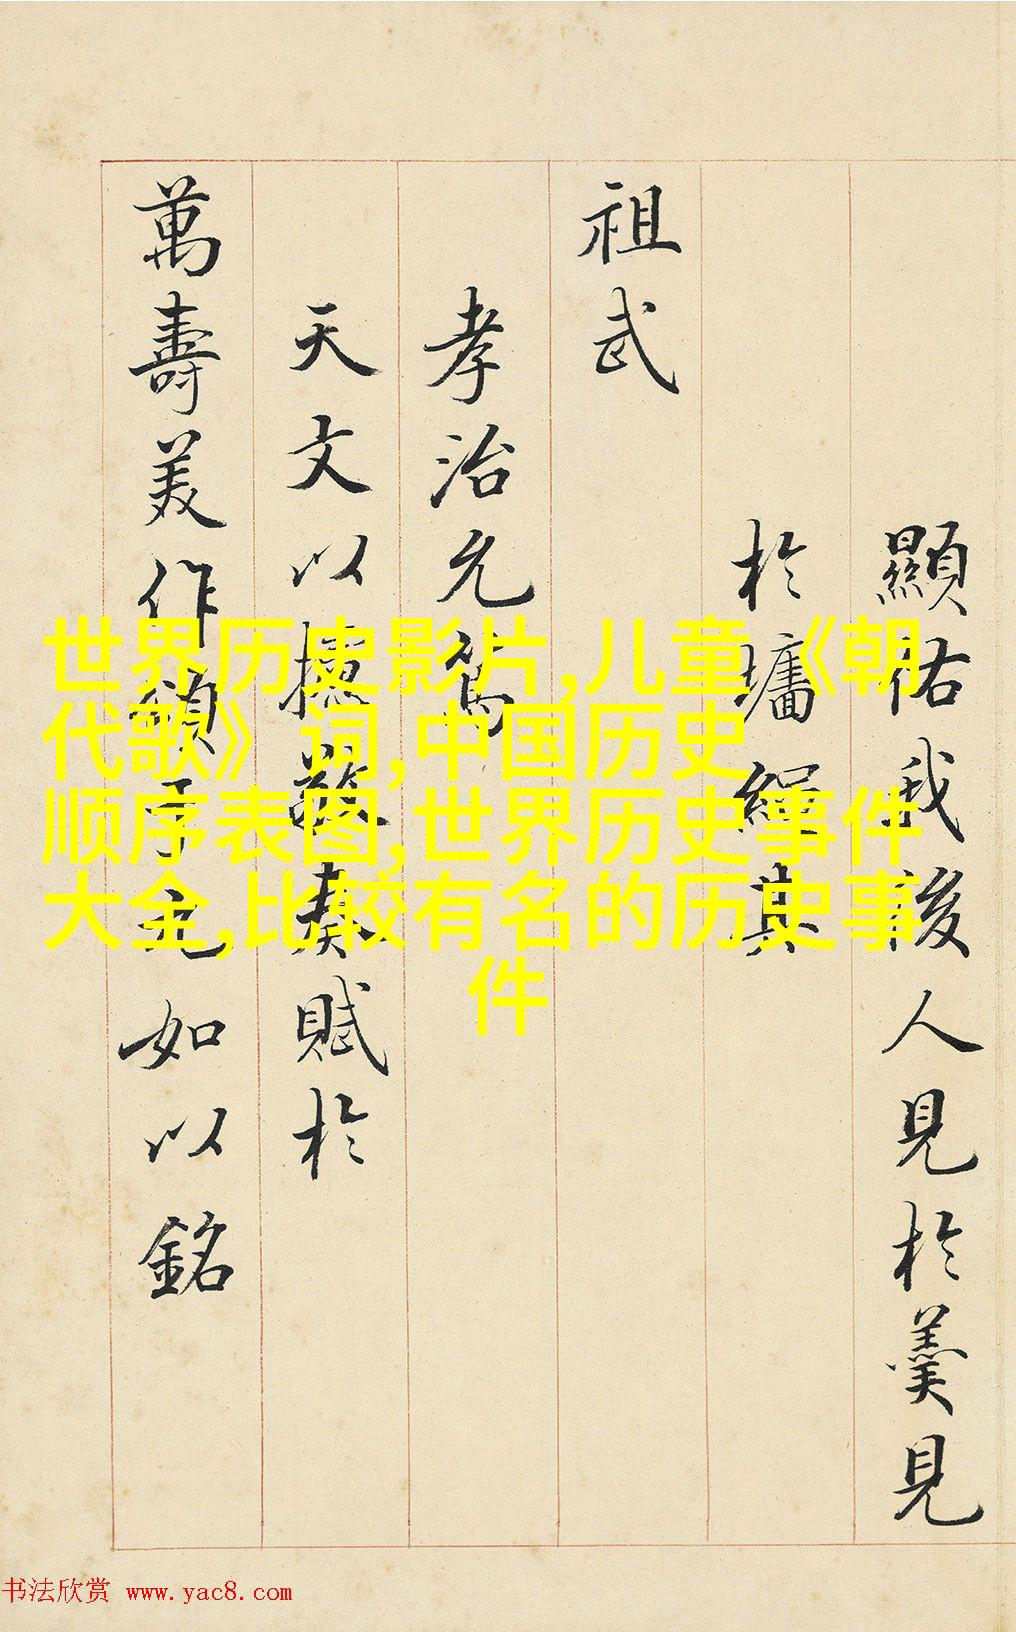 顯佑我後人見於羹見
於墻繩其
祖武
孝治允篤
天文以奏賦於
萬壽美作頌如以銘
世界历史影片,儿童《朝
代歌》词,中国历史
顺序表图,世界历史事件
大全,比较有名的历史事
件
书法欣赏 www.yac8.com